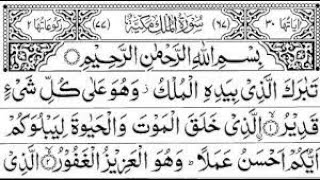 اٰيَاتُهَا ٣٠ (٦٧) سُوْرَةُ الْمُلْكِ مَكِّيَّةٌ (٧٧) رُكُوْعَاتُهَا ٢
بِسْمِ اللّٰهِ الرَّحْمٰنِ الرَّحِيْمِ
تَبٰرَكَ الَّذِيْ بِيَدِهِ الْمُلْكُ ز وَهُوَ عَلٰى كُلِّ شَيْءٍ
قَدِيْرُ ۨ ۝١ الَّذِيْ خَلَقَ الْمَوْتَ وَالْحَيٰوةَ لِيَبْلُوَكُمْ
اَيُّكُمْ اَحْسَنُ عَمَلًا ؕ وَهُوَ الْعَزِيْزُ الْغَفُوْرُ ۝٢ الَّذِيْ